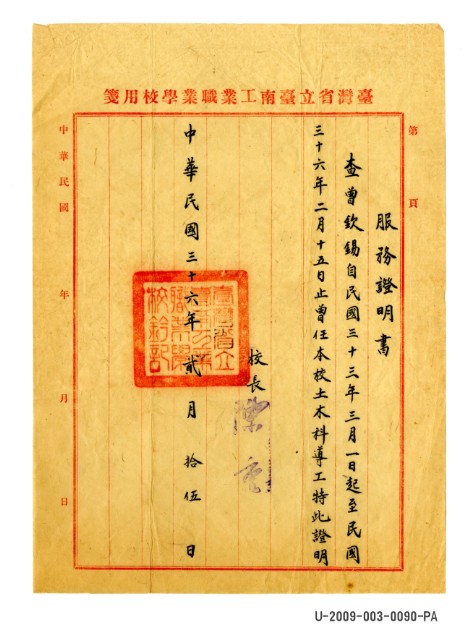 臺灣省立臺南工業職業學校用箋
第 頁
服務證明書
查曾欽錫自民國三十三年三月一日起至民國
三十六年二月十五日止曾任本校土木科導工特此證明
校長
中華民國三十六年貳月拾伍日
臺灣省立
臺南工業
職業學
校鈐記
中華民國 年 月 日
U-2009-003-0090-PA